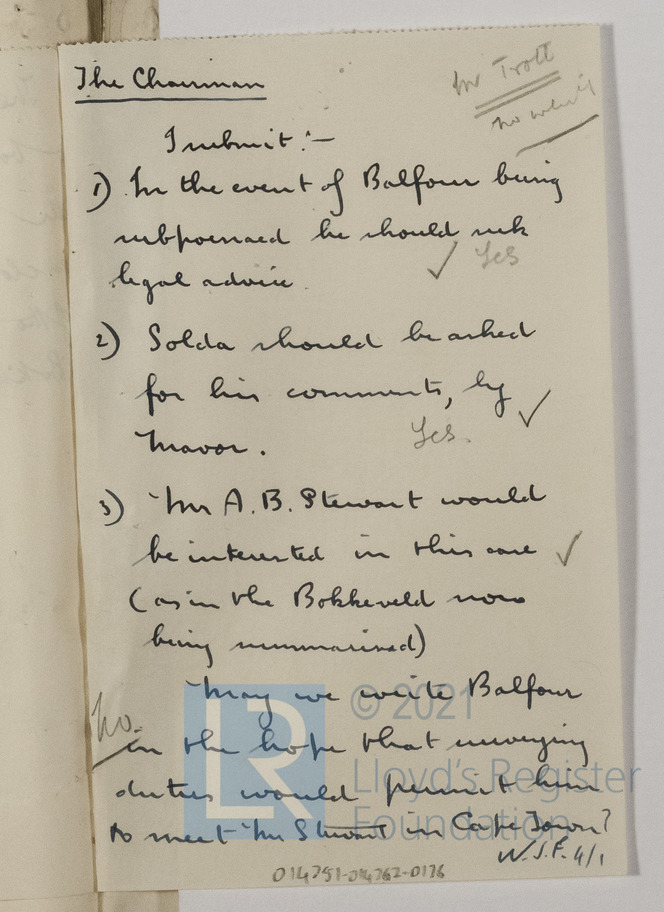 The Chairman
Mr Trott
no
I submit :-
1) In the event of Balfour being
subpoenaed he should seek
legal advice. ✓ Yes
2) Solda should be asked
for his comments, by ✓
Mavor. Yes.
3) Mr A. B. Stewart would
be interested in this case ✓
(as in the Bokkeveld now
being summarised)
May we write Balfour
No.
in the hope that surveying
duties would permit him
to meet Mr Stewart in Cape Town?
W.J.F. 4/1
LR
© 2021
Lloyd's Register
Foundation
014791-014762-0176